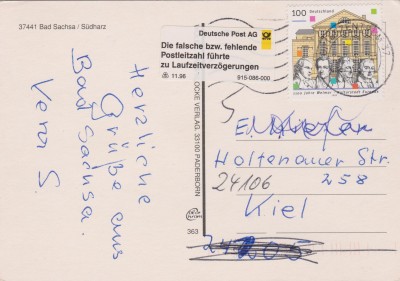 37441 Bad Sachsa / Südharz
Herzliche
Grüße aus
Bad Sachsa.
Vera S.
Deutsche Post AG
Die falsche bzw. fehlende
Postleitzahl führte
zu Laufzeitverzögerungen
11.98 915-086-000
OCKE VERLAG, 33100 PADERBORN
363
100 Deutschland
Holtenauer Str.
24106 258
Kiel